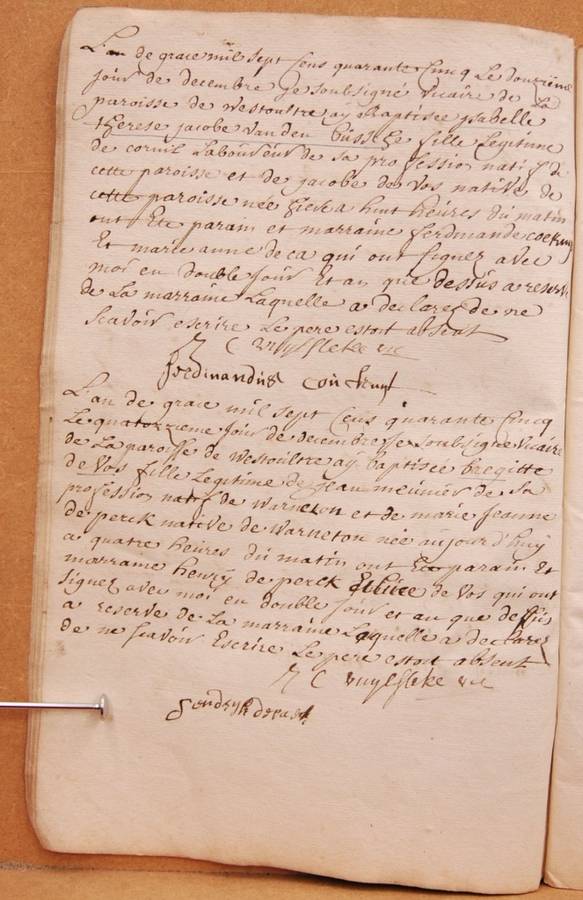 L'an de grace mil sept cens quarante cincq Le douzième
jour de decembre je soubsigné vicaire de La
paroisse de Westoultre aÿ Baptisée ysabelle
therese jacobe vanden bussche fille Legitime
de cornil Laboureur de sa profession natif de
cette paroisse et de jacobe de Vos native de
cette paroisse née hier a huit heures du matin
ont Ete parain et marraine ferdinande
Et marie anne qui ont signez avec
moi en double jour Et an que dessus a reserve
de La marraine Laquelle a declarez de ne
scavoir escrire Le pere estoit absent
C vuylsteke vic
ferdinandus
L'an de grace mil sept cens quarante cincq
Le quatorzieme jour de decembre je soubsigné vicaire
de La paroisse de Westoultre aÿ baptisée bregitte
de Vos fille Legitime de jean meunier de sa
profession natif de Warneton et de marie jeanne
de perck native de Warneton née aujourd'huÿ
a quatre heures du matin ont Ete parain Et
marraine henrÿ de perck Et de Vos qui ont
signez avec moi en double jour et an que dessus
a reserve de La marraine Laquelle a declarez
de ne scavoir Escrire Le pere estoit absent
C vuylsteke vic